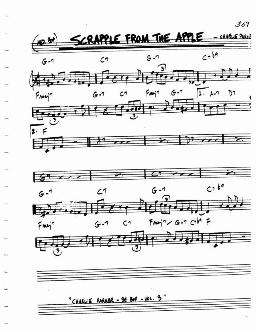 367
(MED. BOP) SCRAPPLE FROM THE APPLE - CHARLIE PARKER
G-7 C7 G-7
Fmaj7 G-7 C7 Fmaj7 G-7 1. A-7 D7
2. F
G-7 C7 G-7
Fmaj7 G-7 C7 Fmaj7 G-7 F
"CHARLIE PARKER - BE BOP - VOL. 3"